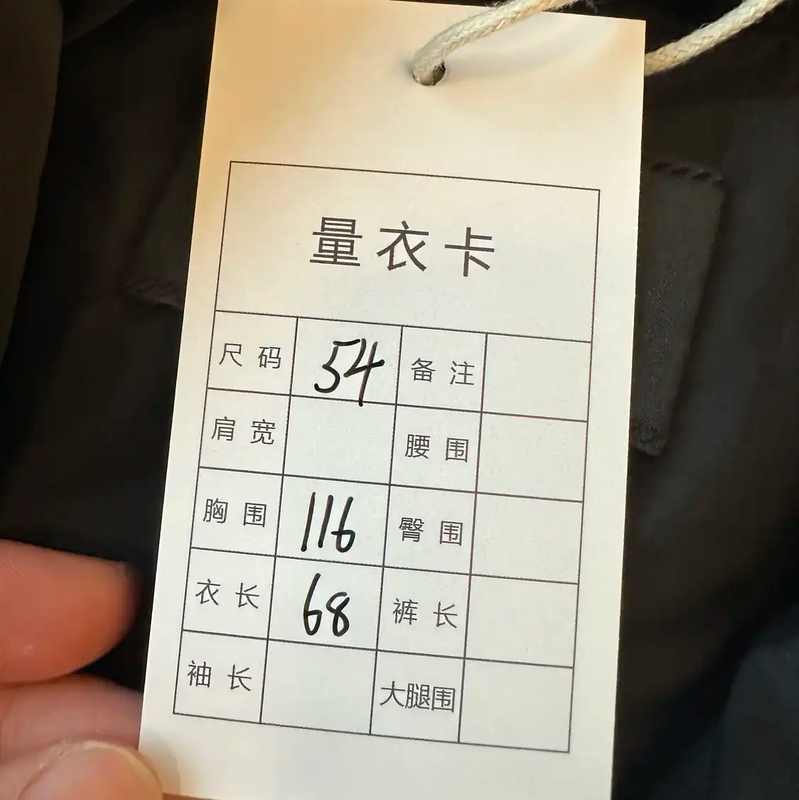 量衣卡
尺码 54 备注
肩宽 腰围
胸围 116 臀围
衣长 68 裤长
袖长 大腿围